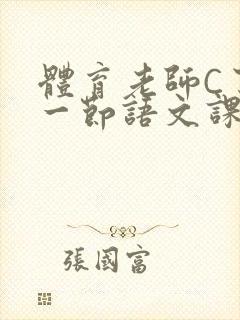 體育老師C
一節語文課
張國富